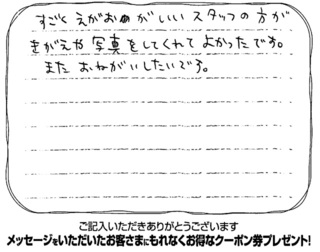 すごく えがおのがしいい スタッフの方が
きがえや 写真をしてくれて よかったです。
また おねがいしたいです。
ご記入いただきありがとうございます
メッセージをいただいたお客さまにもれなくお得なクーポン券プレゼント!